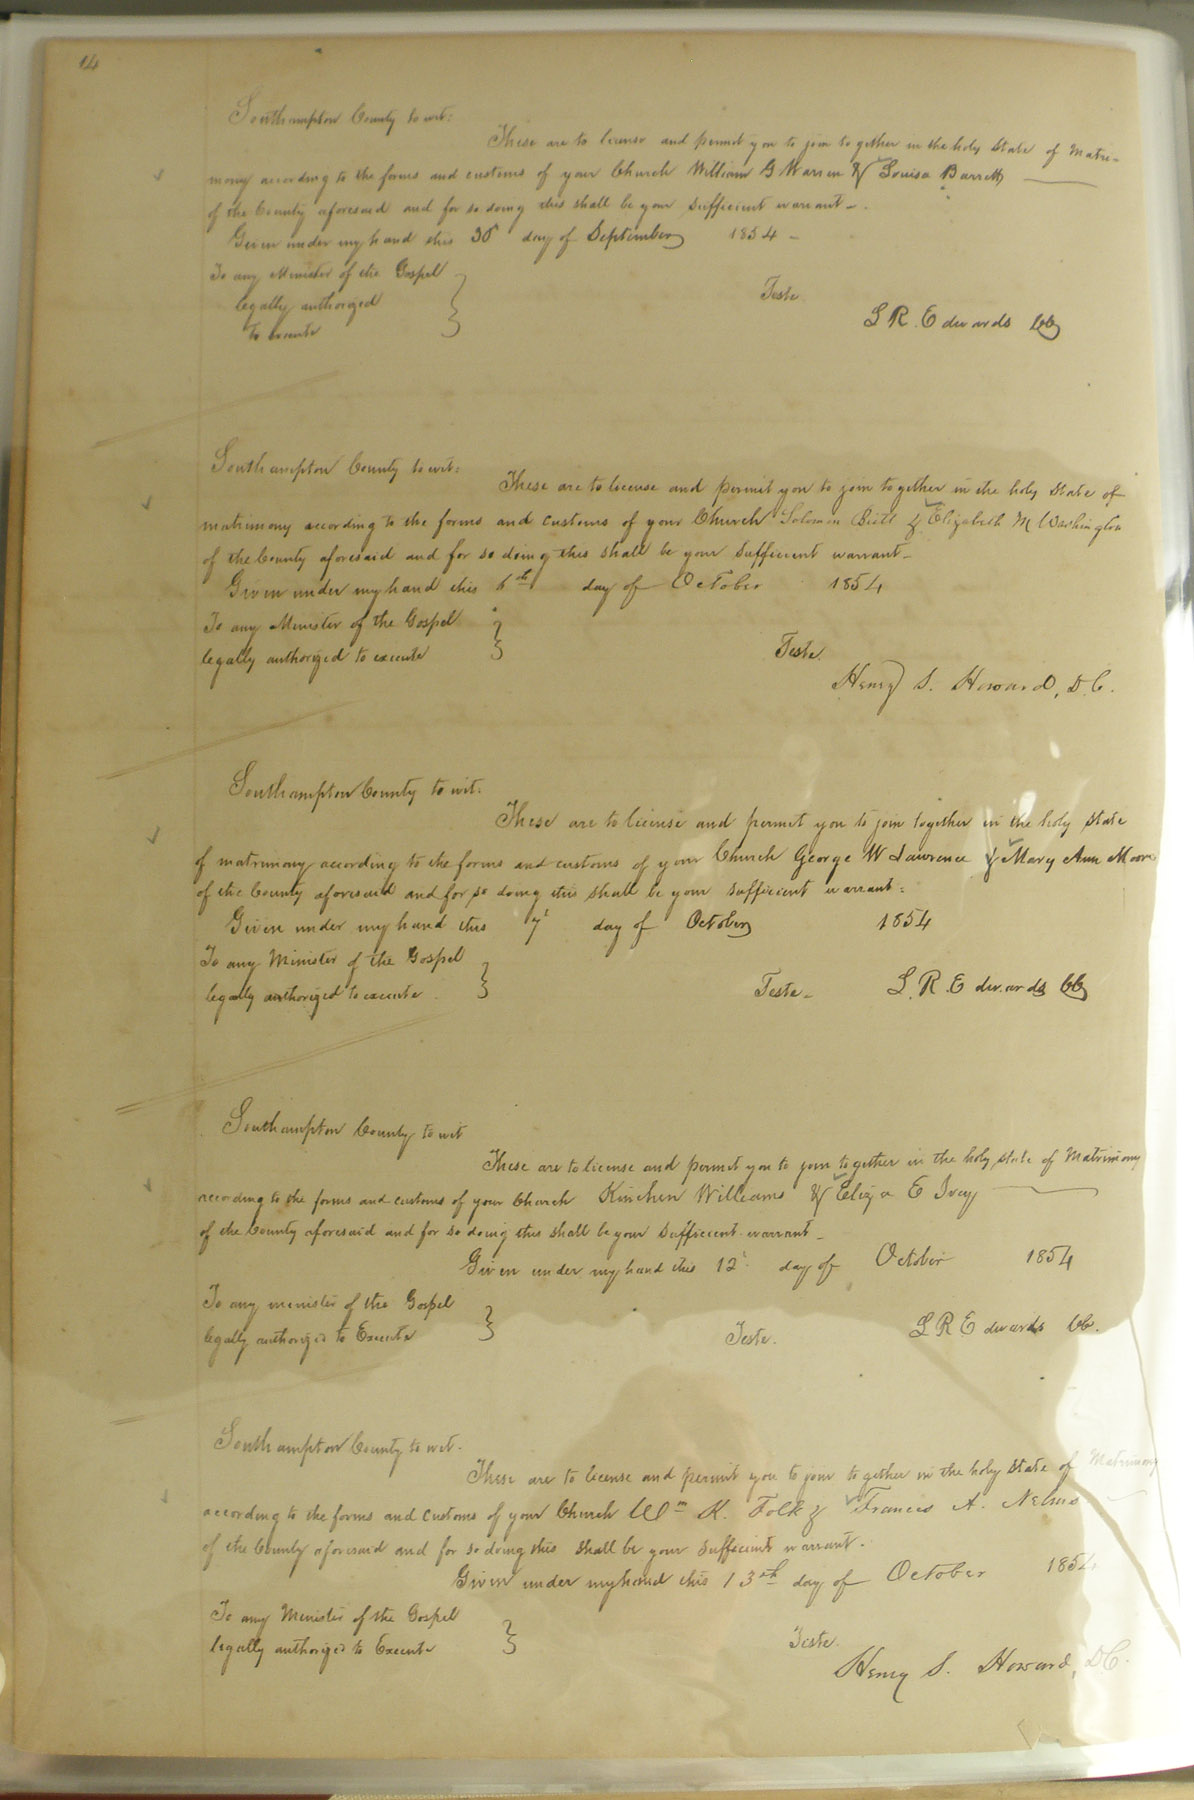 14
Southampton County to wit:
These are to license and permit you to join together in the holy State of Matri-
mony according to the forms and customs of your Church William G Warren & Louisa Barrett
of the County aforesaid and for so doing this shall be your Sufficient warrant -.
Given under my hand this 30 day of September 1854 -
To any Minister of the Gospel
legally authorized
to execute
Teste
L R. Edwards CC
Southampton County to wit:
These are to license and permit you to join together in the holy State of
matrimony according to the forms and customs of your Church Solomon & Elizabeth M Washington
of the County aforesaid and for so doing this shall be your Sufficient warrant -
Given under my hand this 6th day of October 1854
To any Minister of the Gospel
legally authorized to execute
Teste.
Henry S. Howard, D.C.
Southampton County to wit.
These are to license and permit you to join together in the holy State
of matrimony according to the forms and customs of your Church George W Lawrence & Mary Ann Moore
of the County aforesaid and for so doing this shall be your Sufficient warrant -
Given under my hand this 7t day of October 1854
To any Minister of the Gospel
legally authorized to execute
Teste - L. R. Edwards CC
Southampton County to wit
These are to license and permit you to join together in the holy state of Matrimony
according to the forms and customs of your Church Kinchen Williams & Eliza E Ivey
of the County aforesaid and for so doing this shall be your Sufficient warrant -
Given under my hand this 12t day of October 1854
To any minister of the Gospel
legally authorized to Execute
Teste. L R Edwards CC.
Southampton County to wit.
These are to license and permit you to join together in the holy State of Matrimony
according to the forms and customs of your Church Wm K. Folk & Frances A. Nelms
of the County aforesaid and for so doing this shall be your Sufficient warrant.
Given under my hand this 13th day of October 1854
To any Minister of the Gospel
legally authorized to Execute
Teste.
Henry S. Howard, D.C.